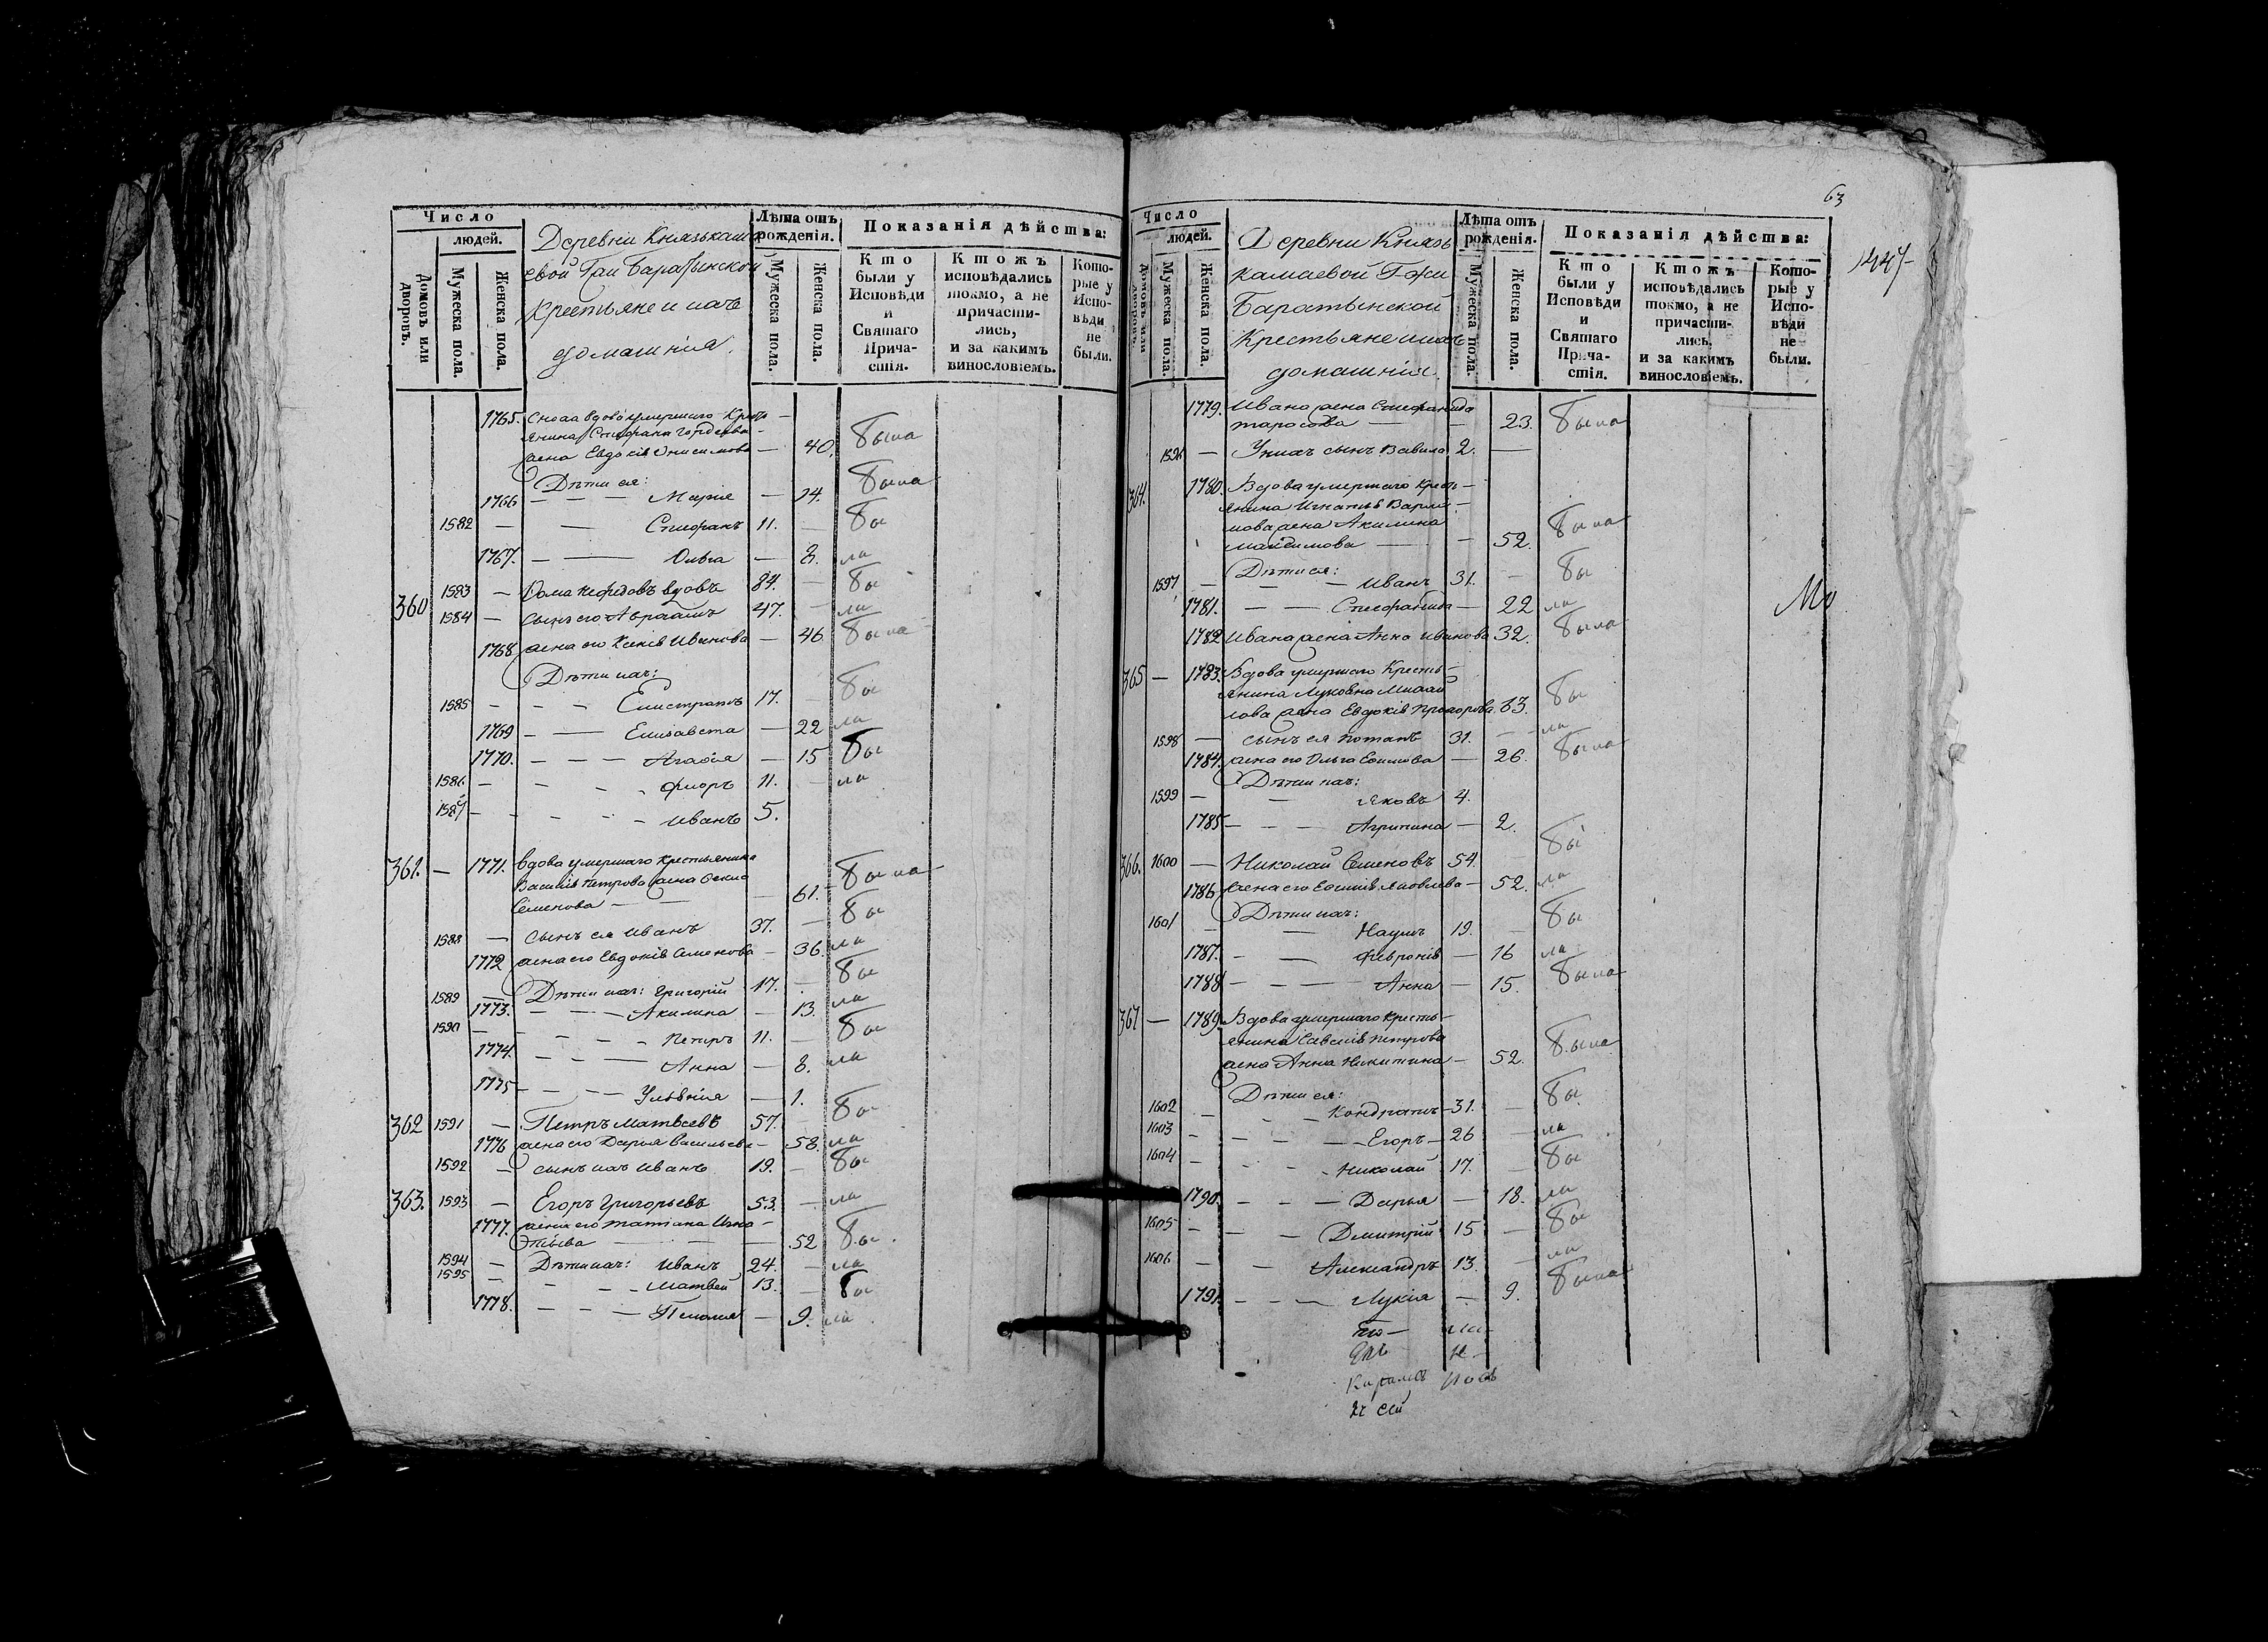 Число
людей.
Домовъ или дворовъ.
Мужеска пола.
Женска пола.
Деревни Князькама
евой Гжи Баратынской
Крестьяне и ихъ
домашнія.
Лѣта отъ рожденія.
Мужеска пола.
Женска пола.
Показанія дѣйства:
Кто были у Исповѣди и Святаго Прича-стія.
Ктожъ исповѣдались токмо, а не причасти-лись, и за какимъ винословіемъ.
Кото-рые у Испо-вѣди не были.
1765. Сноха вдова умершаго Кресть —
янина Стефана Гордеева —
жена Евдокія Онисимова — 40. была
Дѣти ея:
1766 — — — Марія — 14. была
1582 — — Стефанъ 11. — бы
1767. — — Ольга — 8. ла
360 1583 — Фома Нефедовъ вдовъ 84. — бы
1584 — сынъ его Авраамъ 47. — ла
1768 жена его Ксенія Иванова — 46. была
Дѣти ихъ:
1585 — — — Елистратъ 17. — бы
1769 — — Елисавета — 22 ла
1770. — — — Агафія — 15 бы
1586 — — — Флоръ 11. — ла
1587 — — — — Иванъ 5.
361. — 1771. вдова умершаго Крестьянина
Василія Петрова жена Фекла
Семенова — — — 61. была
1588 — сынъ ея Иванъ 37. — бы
1772 жена его Евдокія Семенова — 36. ла
1589 — Дѣти ихъ: Григорій 17. — бы
1773. — — — Акилина — 13. ла
1590 — — — — Петръ 11. — бы
1774. — — — Анна — 8. ла
1775 — — — — Ульянія — 1.
362 1591 — Петръ Матвеевъ 57. бы
1776 жена его Дарья Васильева — 58. ла
1592 — сынъ ихъ Иванъ 19. — бы
363. 1593 — Егоръ Григорьевъ 53. — ла
1777. жена его Татіана Игна —
тьева — — — 52 бы
1594 — Дѣти ихъ: Иванъ 24. — ла
1595 — — — Матвей 13. — бы
1778. — — — Пелагія — 9. ла
63
1447
Число
людей.
Домовъ или дворовъ.
Мужеска пола.
Женска пола.
Деревни Князь
камаевой Гжи
Баратынской
Крестьяне ихъ
домашнія.
Лѣта отъ рожденія.
Мужеска пола.
Женска пола.
Показанія дѣйства:
Кто были у Исповѣди и Святаго Прича-стія.
Ктожъ исповѣдались токмо, а не причасти-лись, и за какимъ винословіемъ.
Кото-рые у Испо-вѣди не были.
1779. Ивана жена Стефанида
Тарасова — — 23. была
1596 — У нихъ сынъ Вавила 2. —
364. 1780. Вдова умершаго Кресть —
янина Игнатія Варла —
мова жена Акилина
Максимова — — 52. была
Дѣти ея:
1597 — — — Иванъ 31. — бы
1781. — — Стефанида — 22 ла
1782 Ивана жена Анна Иванова 32. была
365 — 1783. Вдова умершаго Кресть —
янина
лова жена Евдокія Прохорова. 63. бы
1598 — сынъ ея Потапъ 31. — ла
1784. жена его Ольга Ефимова — 26. была
Дѣти ихъ:
1599 — — Яковъ 4.
1785 — — — Агрипина — 2.
366. 1600 — Николай Семеновъ 54. бы
1786 жена его Яковлева — 52. ла
1601 Дѣти ихъ:
— — Наумъ 19. — бы
1787. — — Февронія — 16 ла
1788 — — — Анна — 15. была
367 — 1789. Вдова умершаго Кресть —
янина Петрова
жена Анна Никитина — 52. была
Дѣти ея:
1602 — — Кондратъ — 31. — бы
1603 — — — Егоръ — 26 — ла
1604 — — — Николай 17. — бы
1790. — — — Дарья — 18. ла
1605 — — — Дмитрій 15 — бы
1606 — — Александръ 13. — ла
1791. — — — Лукія — 9. была